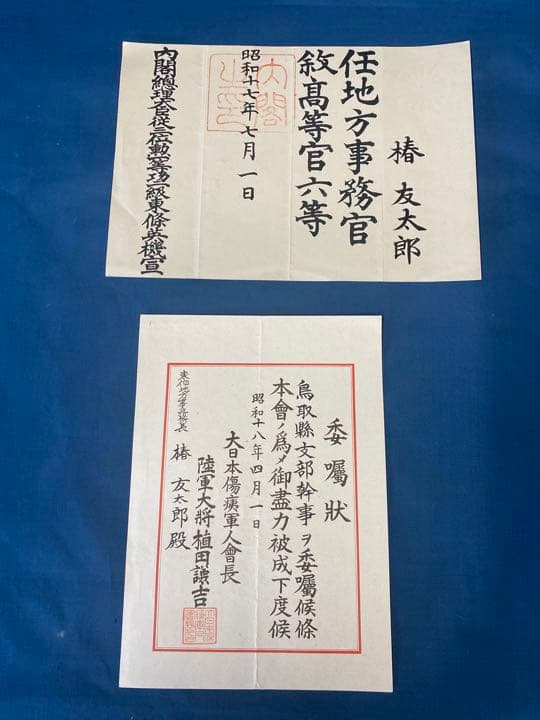 椿 友太郎
任地方事務官
敘高等官六等
昭和十七年七月一日
内閣之印
内閣總理大臣從三位勳一等功二級東條英機宣
委囑狀
鳥取縣支部幹事ヲ委囑候條
本會ノ爲メ御盡力被成下度候
昭和十八年四月一日
大日本傷痍軍人會長
陸軍大將植田謙吉
東伯地方事務所長
椿 友太郎殿